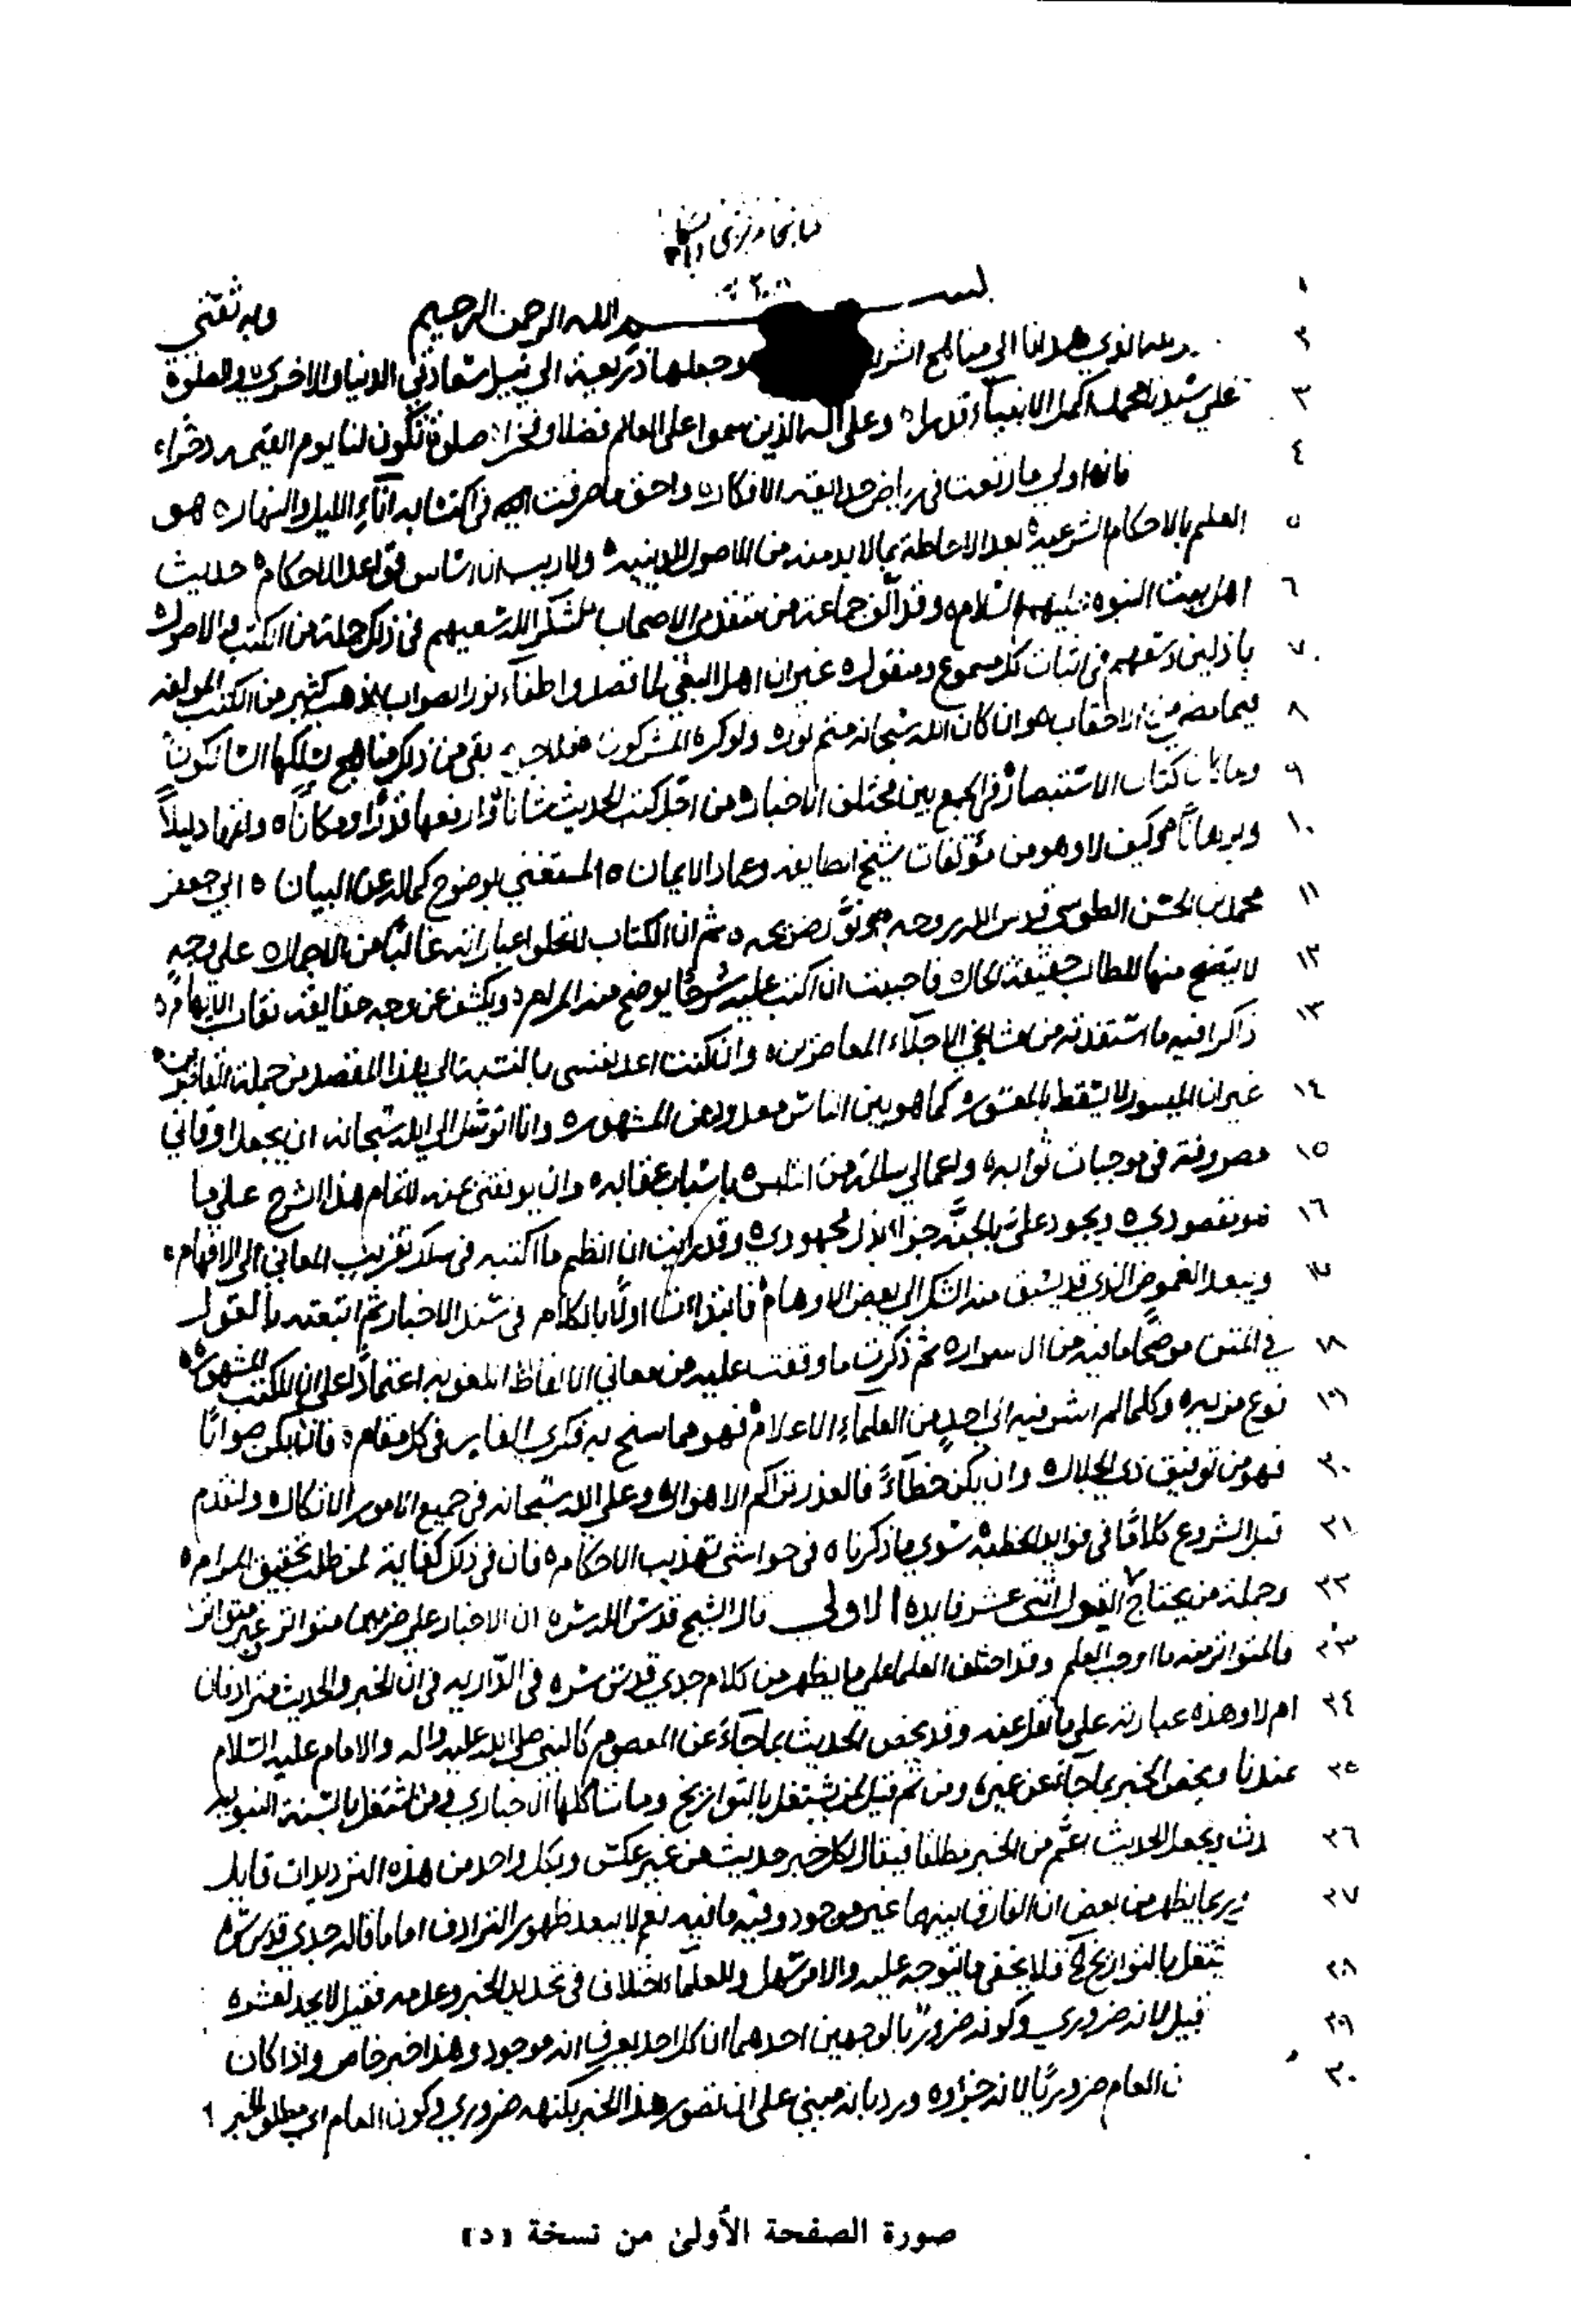 ١ بسم الله الرحمن الرحيم وبه ثقتي
٢ الذي هدانا الى مناهج وجعلها ذريعة الى نيل سعادتي الدنيا والاخرى والصلوة
٣ على سيدنا محمد اكمل الانبياء قدرا وعلى آله الذين سموا على العالم فضلا وفخرا صلوة تكون لنا يوم القيمه ذخرا
٤ فان اولى ما رتعت في رياض حدايقه الافكار واحق ما صرفت في اكتسابه آناء الليل والنهار هو
٥ العلم بالاحكام الشرعيه بعد الاحاطة بما لابد منه من الاصول الدينيه ولاريب ان اساس قواعد الاحكام حديث
٦ اهل بيت النبوه عليهم السلام وقد الف جماعة من متقدمي الاصحاب شكر الله سعيهم في ذلك جملة من الكتب والاصول
٧ باذلين وسعهم في اثبات كل مسموع ومنقول غير ان اهل البغي لما قصدوا اطفاء نور الصواب ذهب كثير من الكتب المولفه
٨ فيما مضى من الاحقاب وان كان الله سبحانه متم نوره ولو كره المشركون فلاجرم بقي من ذلك مناهج يسلكها السالكون
٩ وكان كتاب الاستبصار في الجمع بين مختلف الاخبار من اجل كتب الحديث شانا وارفعها قدرا ومكانا دليلا
١٠ وبرهانا وكيف لا وهو من مؤلفات شيخ الطايفه وعماد الايمان المستغني بوضوح كماله عن البيان ابي جعفر
١١ محمد بن الحسن الطوسي قدس الله روحه ونور ضريحه ثم ان الكتاب لا تخلو عباراته غالبا من الاجمال على وجه
١٢ لا يتضح منها للطالب حقيقة الحال فاحببت ان اكتب عليه شرحا يوضح منه المرام ويكشف عن وجه حقايقه نقاب الابهام
١٣ ذاكرا فيه ما استفدته من مشايخي الاجلاء المعاصرين وان كنت اعد نفسي بالنسبة الى هذا المقصد من جملة القاصرين
١٤ غير ان الميسور لا يسقط بالمعسور كما هو بين الناس معدود من المشهور وانا اتوسل الى الله سبحانه ان يجعل اوقاتي
١٥ مصروفة في موجبات ثوابه واعمالي سالمة من باسباب عقابه وان يوفقني بمنه لاتمام هذا الشرح على ما
١٦ هو مقصودي ويجود علي بالجنة جزاء بذل مجهودي وقد رايت ان انظم ما اكتبه في سلك تقريب المعاني الى الافهام
١٧ ويبعد الغموض الذي قد يسبق منه الشك الى بعض الاوهام فابتدات اولا بالكلام في سند الاخبار ثم اتبعته بالقول
١٨ في المتن موضحا ما فيه من الاسرار ثم ذكرت ما وقفت عليه من معاني الالفاظ اللغويه اعتمادا على ان للكتب المشهوره
١٩ نوع مزيه وكلما لم اشر فيه الى احد من العلماء الاعلام فهو مما سنح به فكري الفاتر في كل مقام فان يكن صوابا
٢٠ فهو من توفيق ذي الجلال وان يكن خطاء فالعذر تراكم الاهوال وعلى الله سبحانه في جميع الامور الاتكال ولنقدم
٢١ قبل الشروع كلاما في فوايد الخطبه سوى ما ذكرناه في حواشي تهذيب الاحكام فان في ذلك كفاية لمن طلب تحقيق المرام
٢٢ وجملة من يحتاج اثني عشر فايده الاولى قال الشيخ قدس الله سره ان الاخبار على ضربين متواتر وغير متواتر
٢٣ فالمتواتر منه ما اوجب العلم وقد اختلف العلما على ما يظهر من كلام جدي قدس سره في الدرايه في ان الخبر والحديث مترادفان
٢٤ ام لا وهذه عبارته على ما نقل عنه وقد يخص الحديث بما جاء عن المعصوم كالنبي صلى الله عليه واله والامام عليه السلام
٢٥ عندنا ويخص الخبر بما جاء عن غيره ومن ثم قيل لمن يشتغل بالتواريخ وما شاكلها الاخباري ومن اشتغل بالسنة النبويه
٢٦ دث ويجعل الحديث اعم من الخبر مطلقا فيقال لكل خبر حديث من غير عكس وبكل واحد من هذه الترديدات قايل
٢٧ وربما يظهر من بعض ان الفارق بينهما غير موجود وفيه ما فيه نعم لا يبعد ظهور الترادف اما ما قاله جدي قدس سره
٢٨ يشتغل بالتواريخ فلا يخفى ما يتوجه عليه والامر سهل وللعلماء اختلاف في تحديد الخبر وعدمه فقيل لا يحد لعسره
٢٩ قيل لانه ضروري وكونه ضروريا لوجهين احدهما ان كل احد يعرف انه موجود وهذا خبر خاص واذا كان
٣٠ ن العام ضروريا لانه جزؤه ورد بانه مبني على ان تصور هذا الخبر بكنهه ضروري وكون العام اي مطلق الخبر
صورة الصفحة الأولىٰ من نسخة «د»